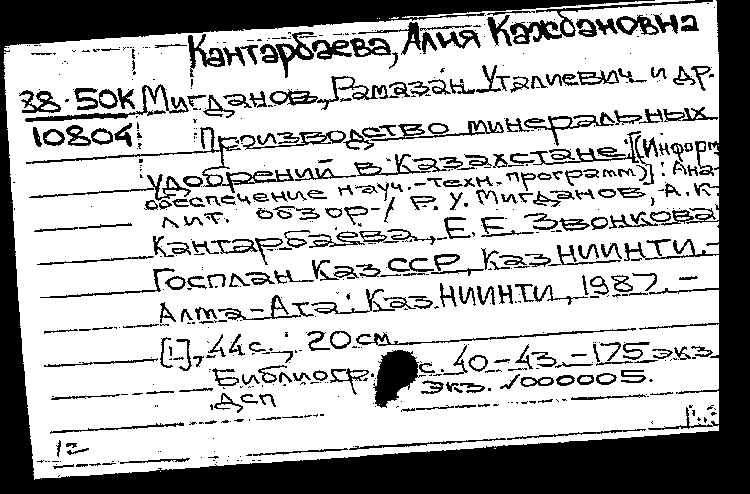 Кантарбаева, Алия Кажбановна
38-50К Мигданов, Рамазан Уталиевич и др.
10804 Производство минеральных
удобрений в Казахстане: [(Информ.
обеспечение науч.-техн. программ)]: Ана-
лит. обзор / Р. У. Мигданов, А. К.
Кантарбаева, Е. Е. Звонкова;
Госплан КазССР, КазНИИНТИ. -
Алма-Ата: КазНИИНТИ, 1987. -
[1], 44 с.; 20 см.
Библиогр. с. 40-43. - 175 экз.
ДСП экз. √000005.
12